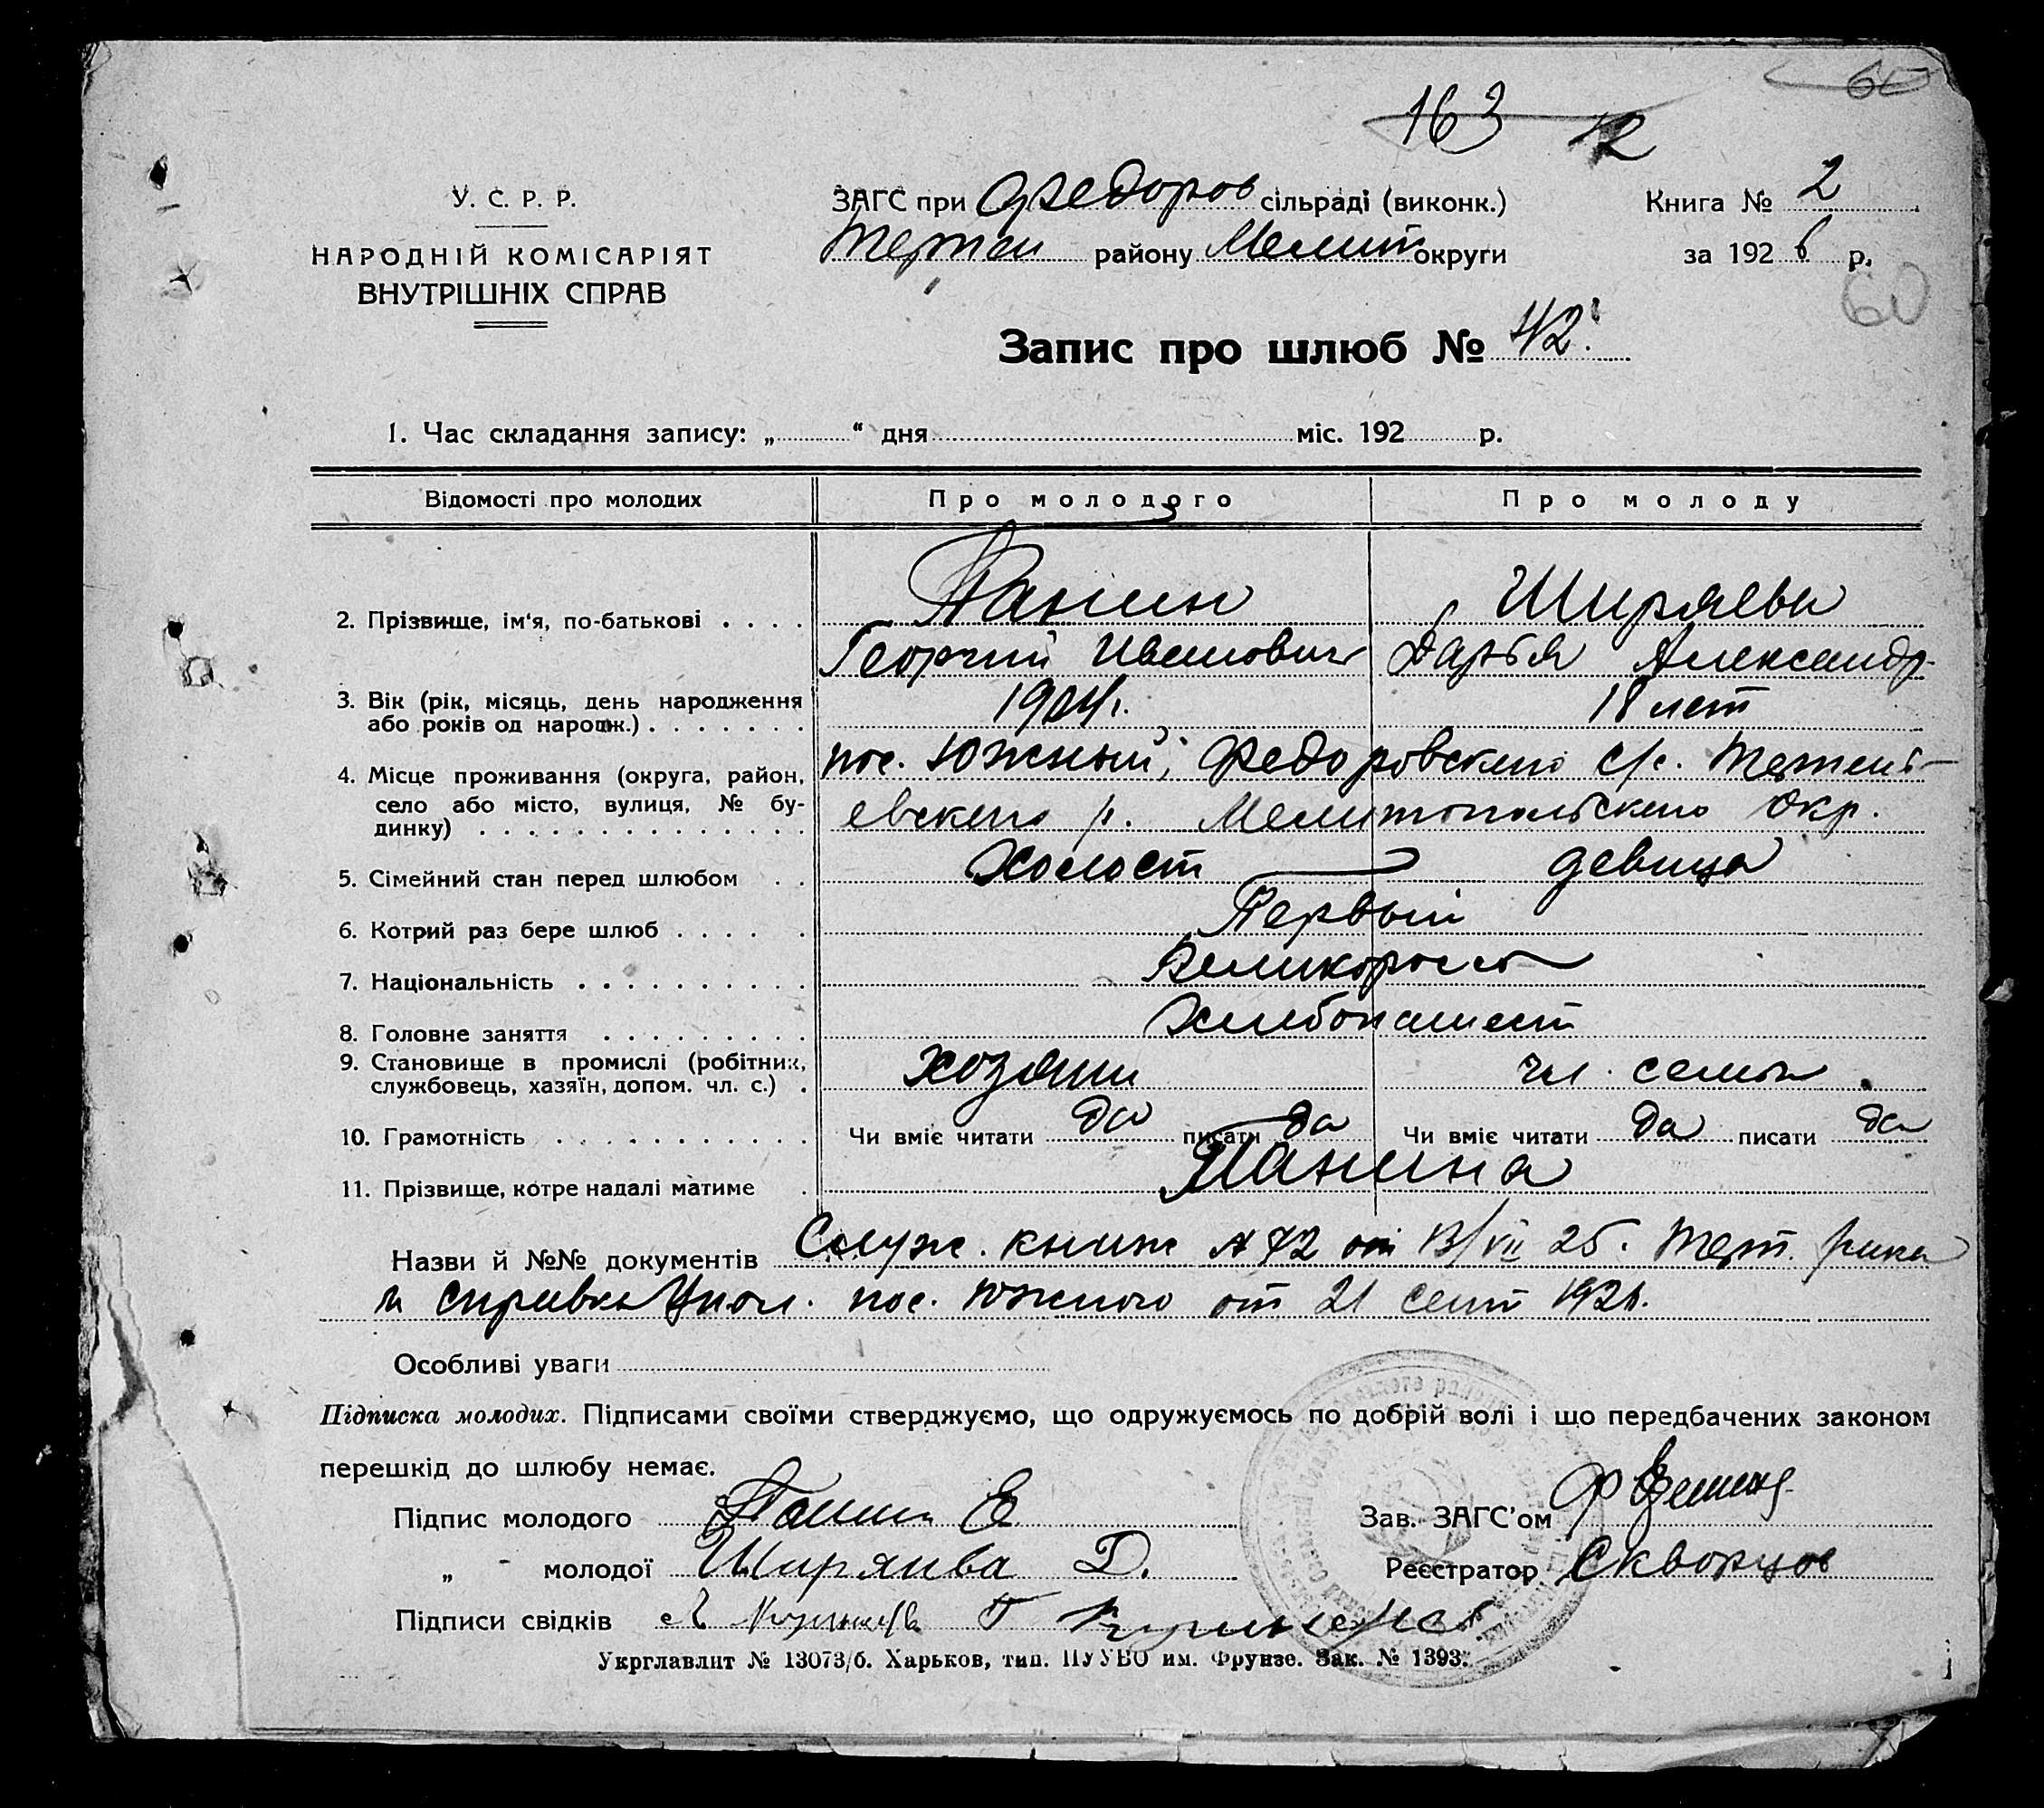 60
163 42
У. С. Р. Р.
НАРОДНІЙ КОМІСАРІЯТ
ВНУТРІШНІХ СПРАВ
ЗАГС при Федоров сільраді (виконк.)
Терпен району Мелит округи
Книга № 2
за 1926 р.
60
Запис про шлюб № 42.
1. Час складання запису: „ “ дня міс. 192 р.
Відомості про молодих Про молодого Про молоду
2. Прізвище, ім'я, по-батькові . . . . Панин Ширяева
Георгий Иванович Дарья Александр-
3. Вік (рік, місяць, день народження
або років од народж.) . . . . . . . 1904г. 18 лет
4. Місце проживання (округа, район, пос. Южный, Федоровского с/с. Терпень-
село або місто, вулиця, № бу-
динку) . . . . . . . . . . . . . . евского р. Мелитопольского Окр.
5. Сімейний стан перед шлюбом . . Холост девица
6. Котрий раз бере шлюб . . . . . Первый
7. Національність . . . . . . . . . . Великороссы
8. Головне заняття . . . . . . . . . Хлебопашест
9. Становище в промислі (робітник,
службовець, хазяїн, допом. чл. с.) . хозяин чл. семьи
10. Грамотність . . . . . . . . . . . Чи вміє читати да писати да Чи вміє читати да писати да
11. Прізвище, котре надалі матиме . Панина
Назви й №№ документів Служ. книж № 72 от 13/VII 25. Терп. рика
и справка Упол. пос. Южного от 21 сент 1926.
Особливі уваги
Підписка молодих. Підписами своїми стверджуємо, що одружуємось по добрій волі і що передбачених законом
перешкід до шлюбу немає.
Підпис молодого Панин Е
Зав. ЗАГС'ом
„ - молодої Ширяива Д.
Реєстратор Скворцов
Підписи свідків
Укрглавлит № 13073/б. Харьков, тип. ПУУВО им. Фрунзе. Зак. № 1393.